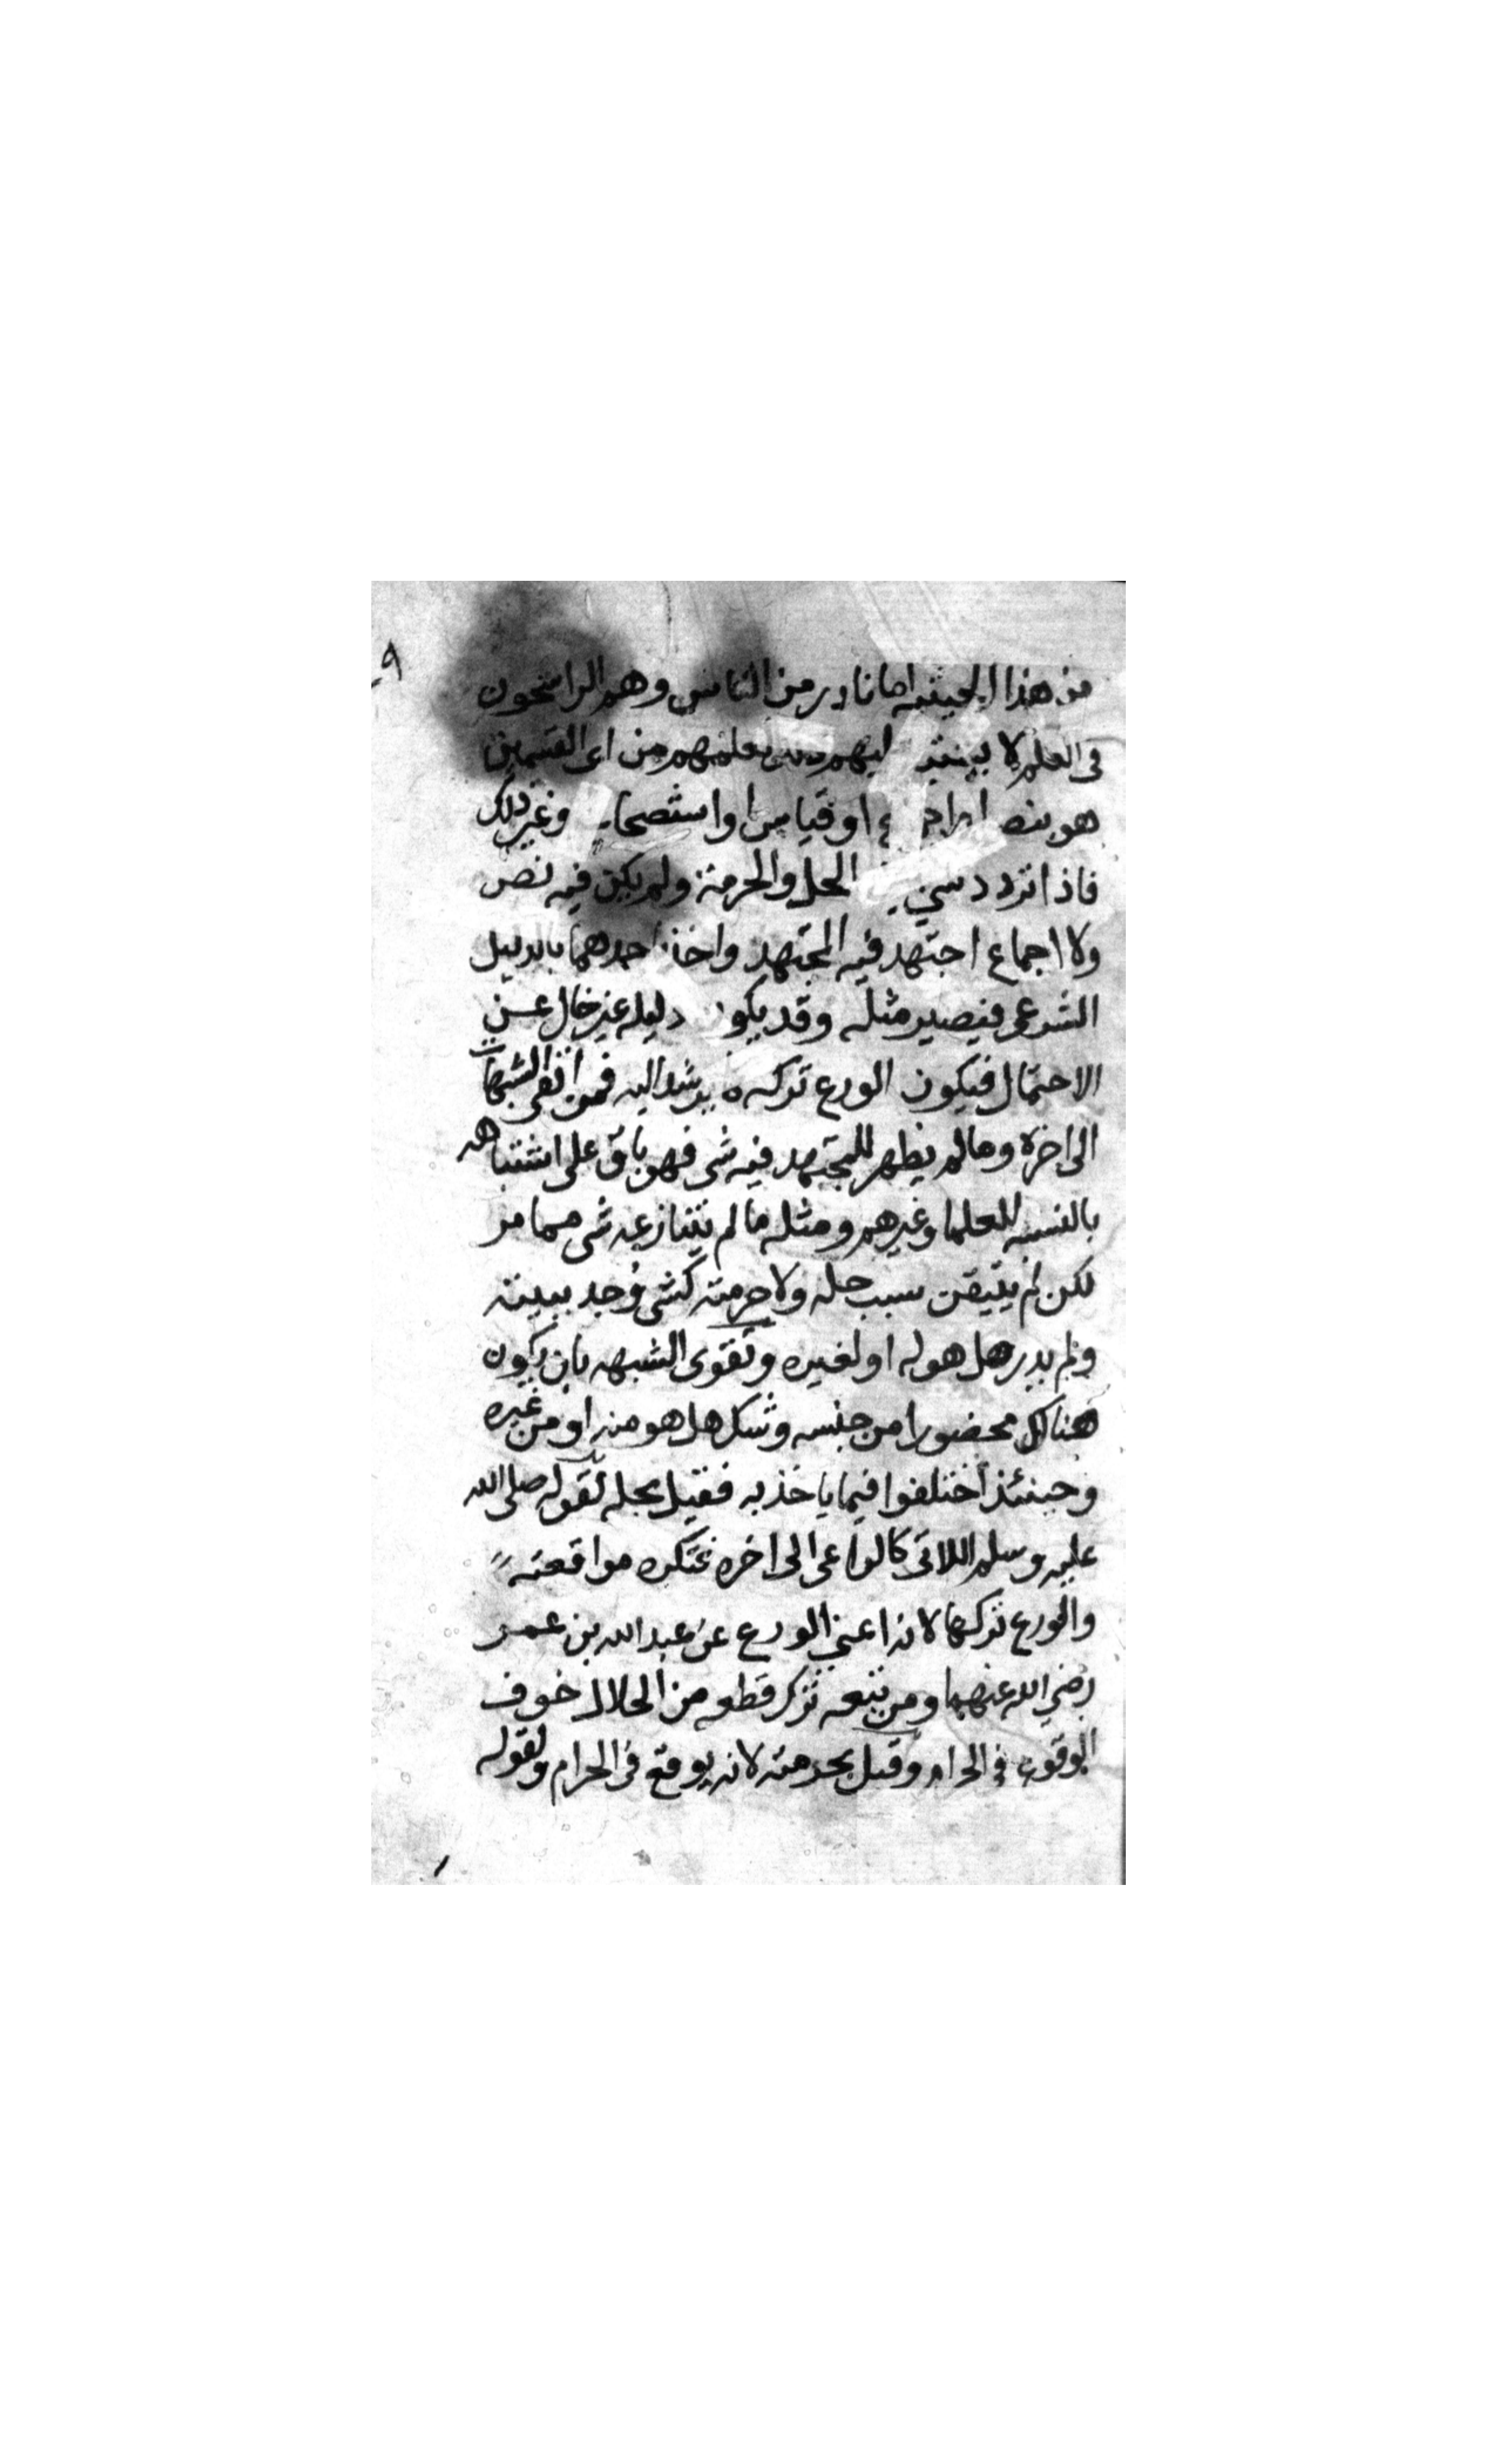 ٩
من هذا الحيثيه اما نادر من الناس وهم الراسخون
فى العلم لا يشتبه ليهم لعلمهم من اى القسمين
هو بنص او قياس او استصحاب وغير ذلك
فاذا تردد شي الحل والحرمة ولم يكن فيه نص
ولا اجماع اجتهد فيه المجتهد واخذ احدهما بالدليل
الشرعى فيصير مثله وقد يكون دليله غير خال عن
الاحتمال فيكون الورع تركه يرشد اليه فمن اتقى الشبهات
الى اخره وما لم يظهر للمجتهد فيه شى فهو باق على اشتباهه
بالنسبه للعلما وغيرهم ومثله ما لم يتنازعه شى مما مر
لكن لم يتيقن سبب حله ولا حرمته كشى وجد ببيته
ولم يدر هل هو له او لغيره وتقوى الشبهه بان يكون
هناك محضورا من جنسه وشك هل هو منه او من غيره
وحينئذ اختلفوا فيما ياخذ به فقيل بحله لقوله صلى الله
عليه وسلم اللاتى كالراعى الى اخره فتكره مواقعته
والورع تركها لانه اعنى الورع عن عبد الله بن عمر
رضي الله عنهما ومن تبعه ترك قطعه من الحلال خوف
الوقوع فى الحرام وقيل بحرمته لانه يوقع فى الحرام ولقوله